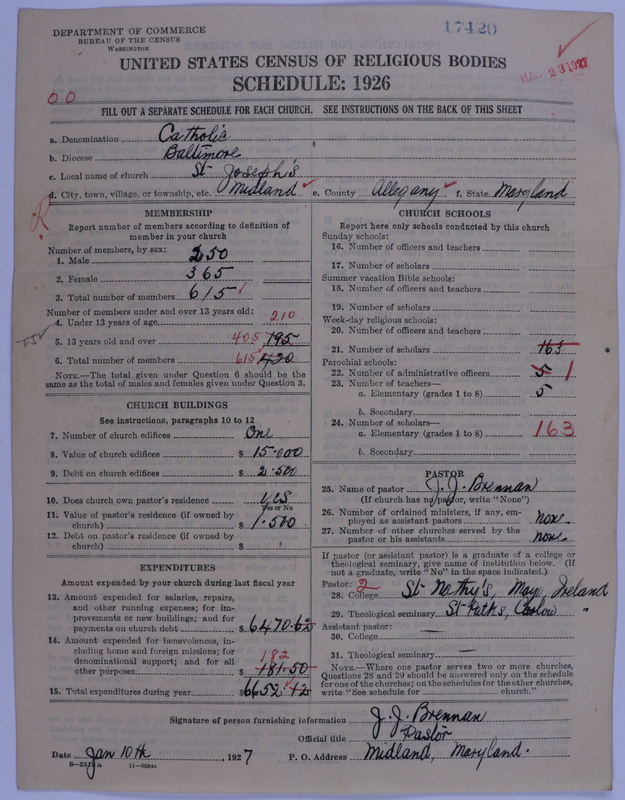 DEPARTMENT OF COMMERCE
BUREAU OF THE CENSUS
WASHINGTON
17420
UNITED STATES CENSUS OF RELIGIOUS BODIES
SCHEDULE: 1926
MAR 23 1927
00
FILL OUT A SEPARATE SCHEDULE FOR EACH CHURCH. SEE INSTRUCTIONS ON THE BACK OF THIS SHEET
a. Denomination Catholic
b. Diocese Baltimore
c. Local name of church St Joseph's
d. City, town, village, or township, etc. Midland ✓ e. County Allegany ✓ f. State Maryland
MEMBERSHIP
Report number of members according to definition of
member in your church
Number of members, by sex:
1. Male 250
2. Female 365
3. Total number of members 615 ✓
Number of members under and over 13 years old:
4. Under 13 years of age 210
5. 13 years old and over 405 195
6. Total number of members 615 420
NOTE.—The total given under Question 6 should be the
same as the total of males and females given under Question 3.
CHURCH BUILDINGS
See instructions, paragraphs 10 to 12
7. Number of church edifices One
8. Value of church edifices $ 15.000
9. Debt on church edifices $ 2.500
10. Does church own pastor's residence yes
Yes or No
11. Value of pastor's residence (if owned by
church) $ 1.500
12. Debt on pastor's residence (if owned by
church) $
EXPENDITURES
Amount expended by your church during last fiscal year
13. Amount expended for salaries, repairs,
and other running expenses; for im-
provements or new buildings; and for
payments on church debt $ 6470.62
14. Amount expended for benevolences, in-
cluding home and foreign missions; for
denominational support; and for all
other purposes $ 182 181.50
15. Total expenditures during year $ 6652.12
CHURCH SCHOOLS
Report here only schools conducted by this church
Sunday schools:
16. Number of officers and teachers
17. Number of scholars
Summer vacation Bible schools:
18. Number of officers and teachers
19. Number of scholars
Week-day religious schools:
20. Number of officers and teachers
21. Number of scholars 165
Parochial schools:
22. Number of administrative officers 5 1
23. Number of teachers—
a. Elementary (grades 1 to 8) 5
b. Secondary
24. Number of scholars—
a. Elementary (grades 1 to 8) 163
b. Secondary
PASTOR
25. Name of pastor J. J. Brennan
(If church has no pastor, write "None")
26. Number of ordained ministers, if any, em-
ployed as assistant pastors none
27. Number of other churches served by the
pastor or his assistants none
If pastor (or assistant pastor) is a graduate of a college or
theological seminary, give name of institution below. (If
not a graduate, write "No" in the space indicated.)
Pastor: 2
28. College St Nathy's, Mayo, Ireland
29. Theological seminary St Pat's, Carlow "
Assistant pastor:
30. College —
31. Theological seminary —
NOTE.—Where one pastor serves two or more churches,
Questions 28 and 29 should be answered only on the schedule
for one of the churches; on the schedules for the other churches,
write "See schedule for church."
Signature of person furnishing information J. J. Brennan
Official title Pastor
Date Jan 10th, 1927 P. O. Address Midland, Maryland.